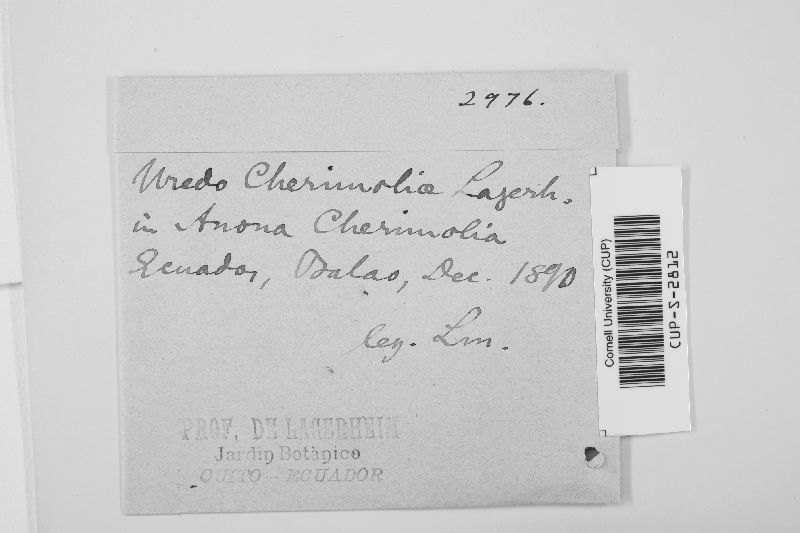 2976.
Uredo Cherimoliæ Lagerh.
in Anona Cherimolia
Ecuador, Balao, Dec. 1890
leg. Lm.
PROF. DE LAGERHEIM
Jardin Botànico
QUITO - ECUADOR
Cornell University (CUP)
CUP-S-2812